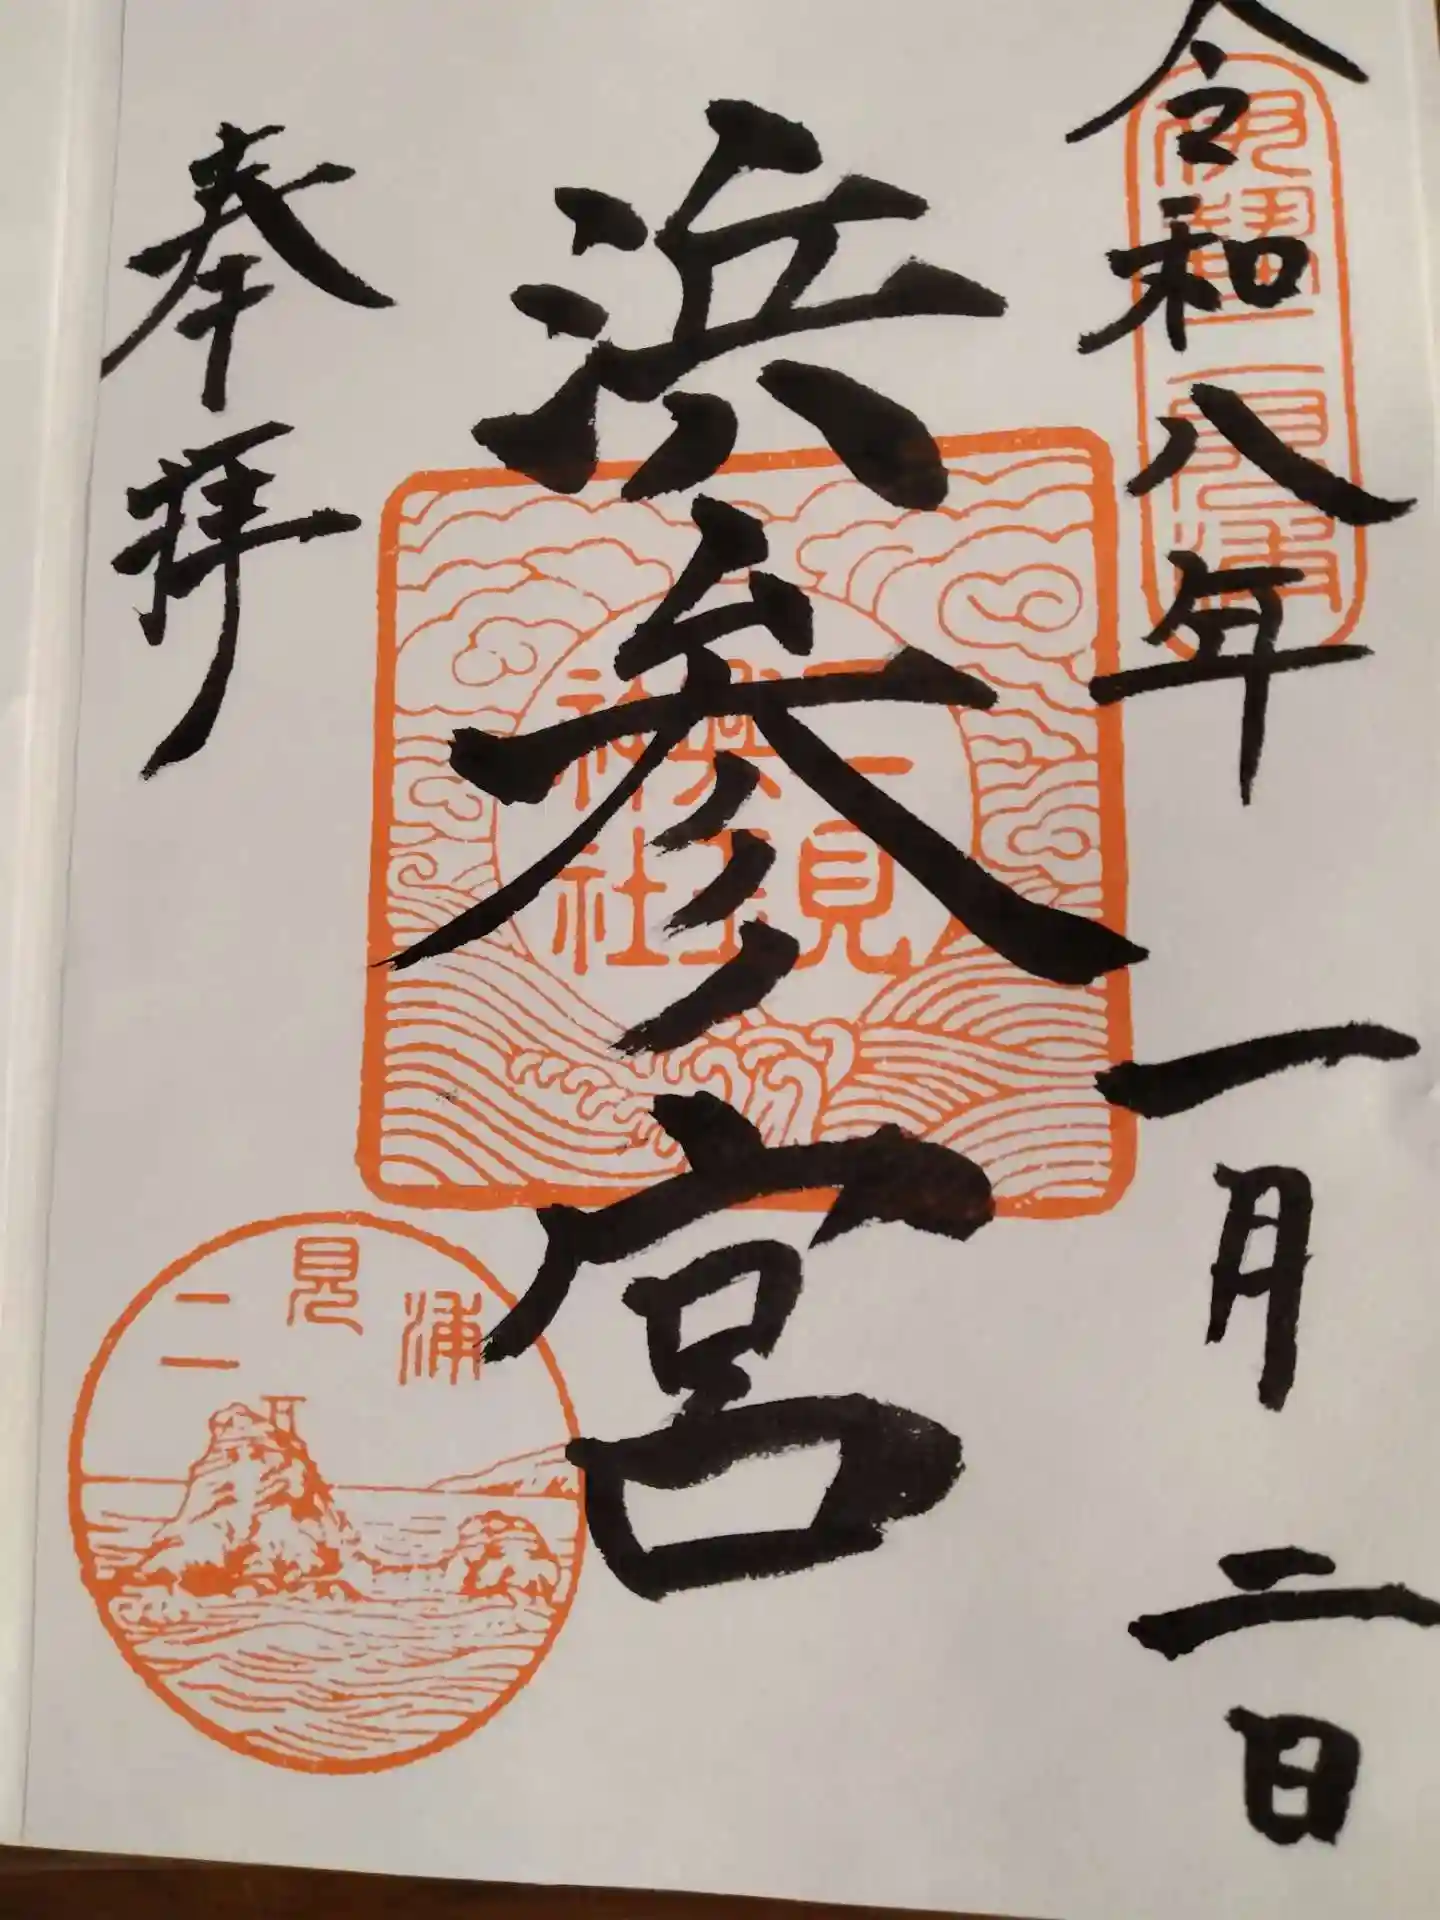 令和八年一月二日
伊勢二見浦
浜参宮
二見興玉神社
奉拝
二見浦